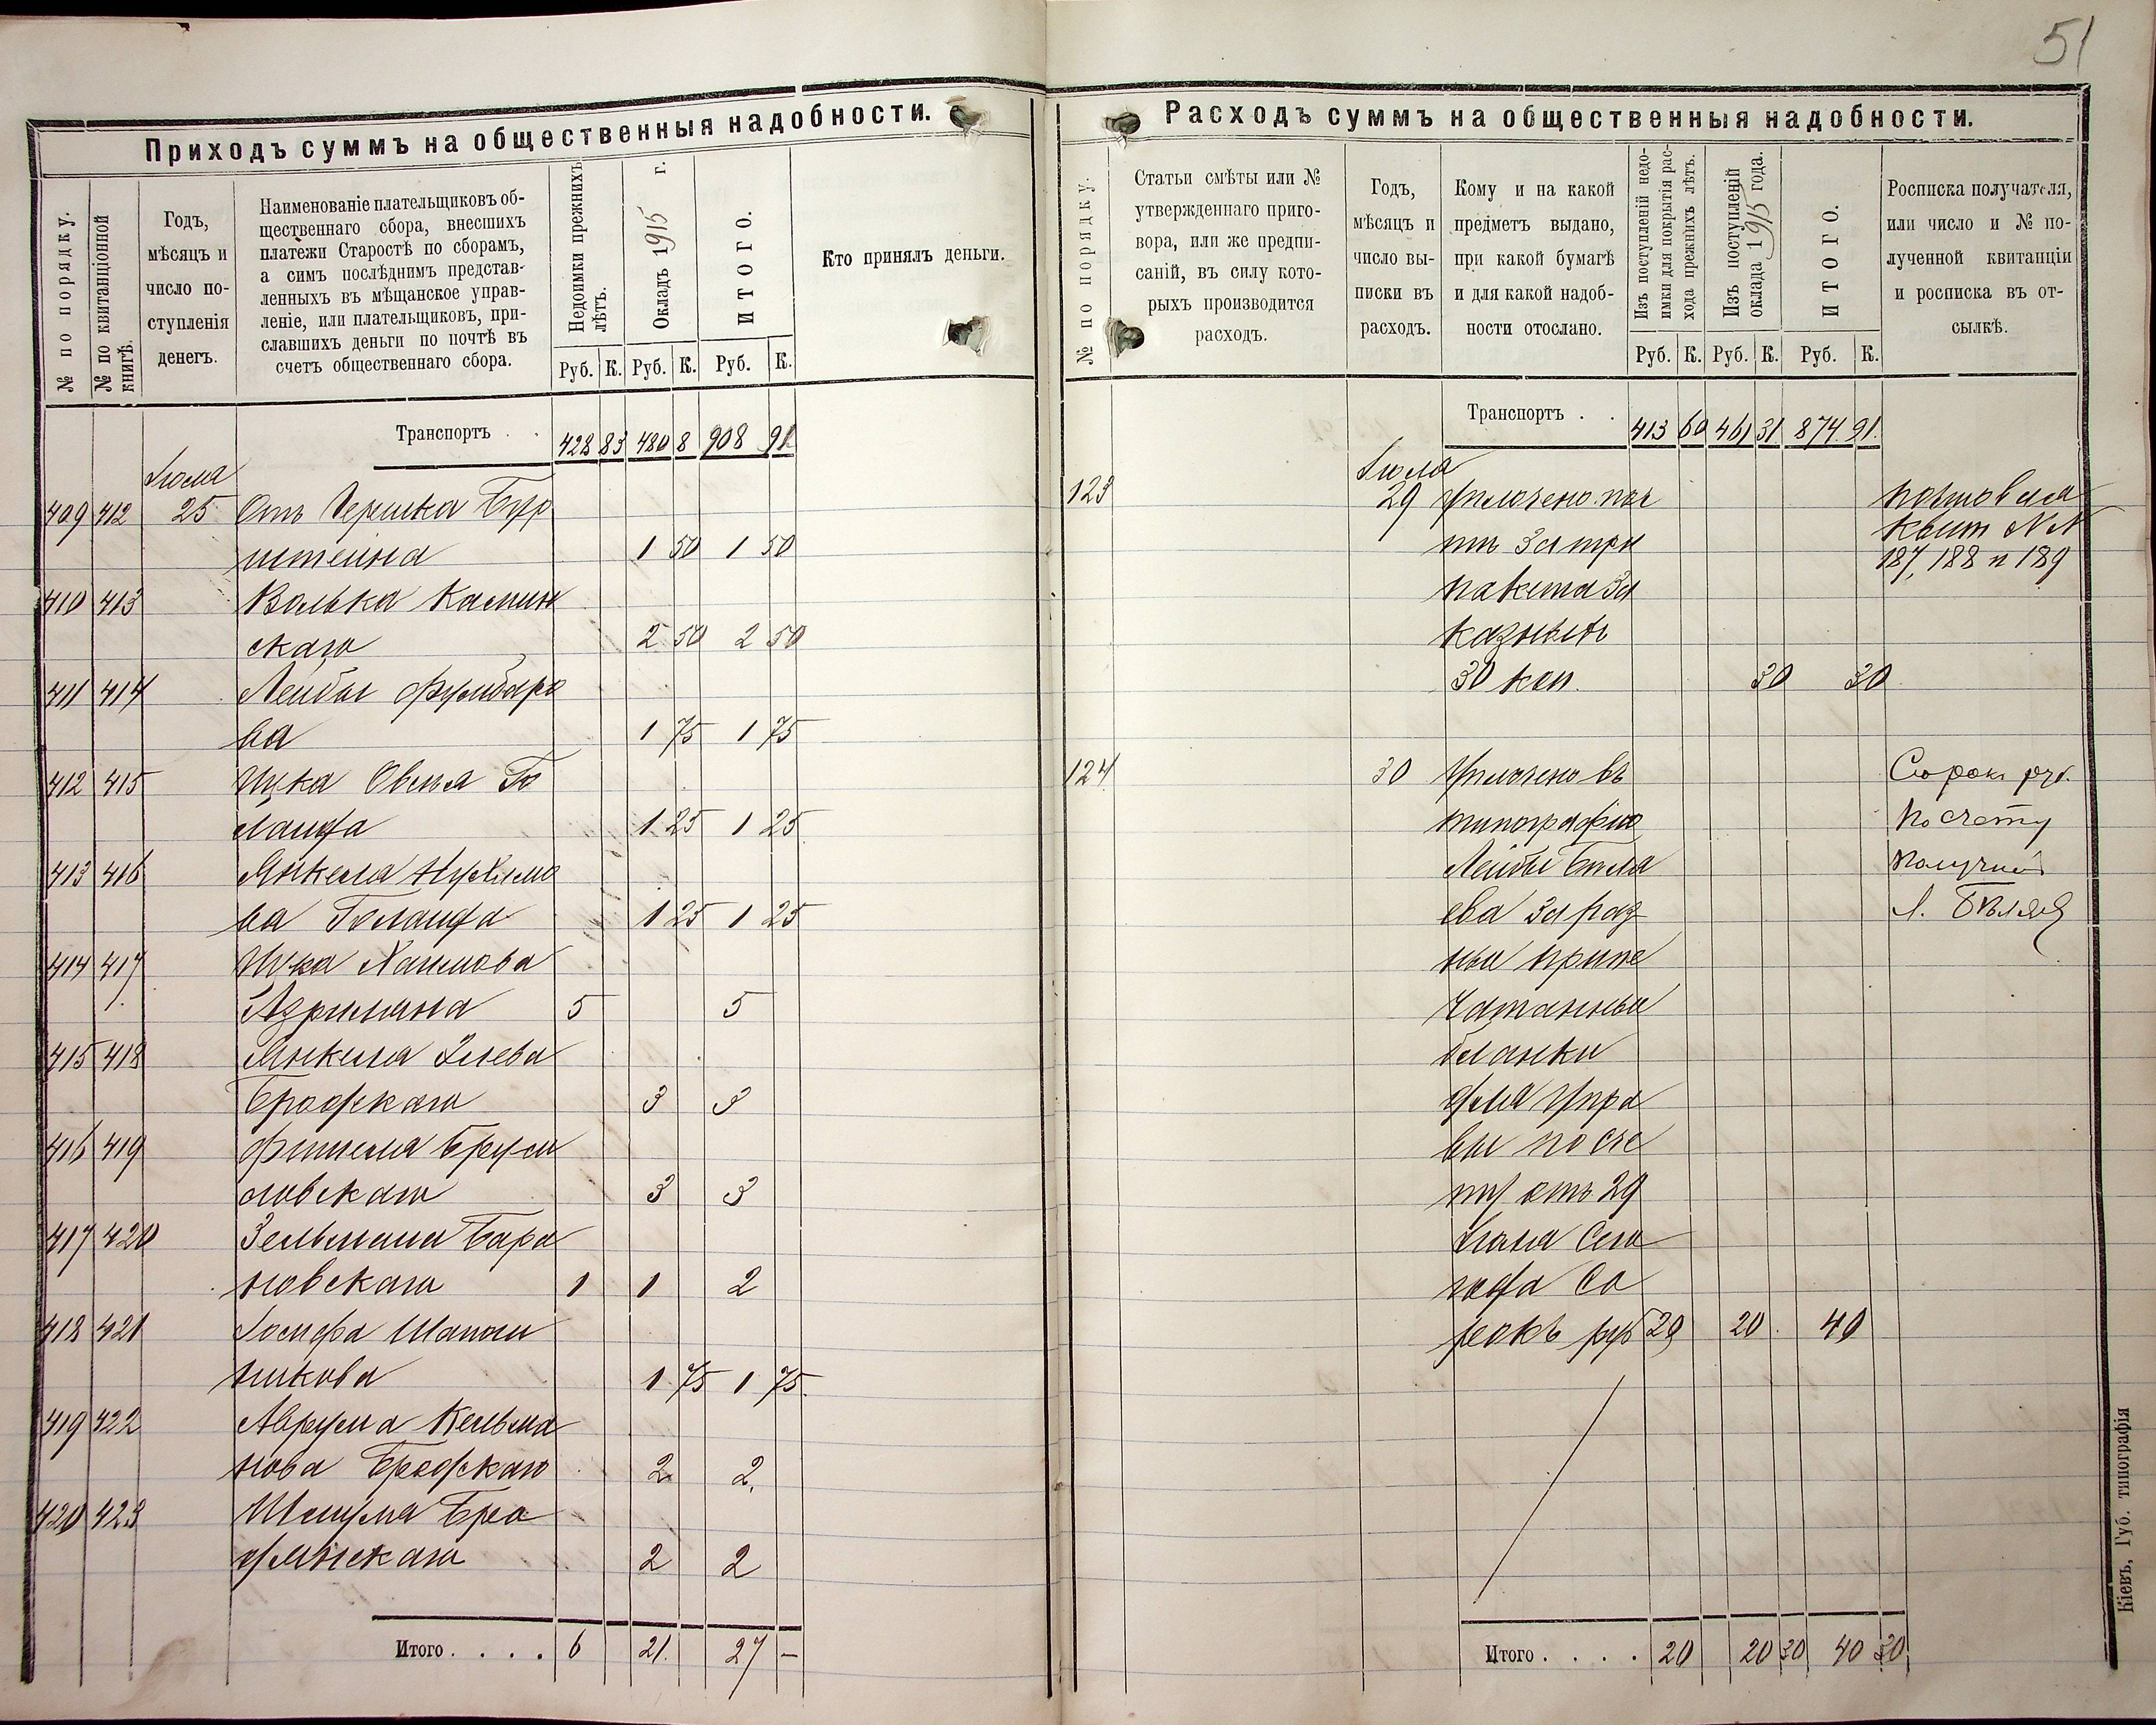 51
Приходъ суммъ на общественныя надобности.
№ по порядку.
№ по квитанціонной
книгѣ.
Годъ,
мѣсяцъ и
число по-
ступленія
денегъ.
Наименованіе плательщиковъ об-
щественнаго сбора, внесшихъ
платежи Старостѣ по сборамъ,
а симъ послѣднимъ представ-
ленныхъ въ мѣщанское управ-
леніе, или плательщиковъ, при-
славшихъ деньги по почтѣ въ
счетъ общественнаго сбора.
Недоимки прежнихъ
лѣтъ.
Окладъ 1915 г.
ИТОГО.
Кто принялъ деньги.
Руб. К. Руб. К. Руб. К.
Транспортъ . . 428 83 480 8 908 91
Іюля
409 412 25 Отъ Гершка Бур
штейна 1 50 1 50
410 413 Волька Камин
скаго 2 50 2 50
411 414 Лейбы
ва 1 75 1 75
412 415 Ицка Овсѣя Го
ланда 1 25 1 25
413 416 Янкеля Нухимо
ва Голанда 1 25 1 25
414 417 Ицка Хаимова
5 5
415 418 Янкеля
Бродскаго 3 3
416 419 Фишеля Бруси
ловскаго 3 3
417 420 Зельмана Бара
новскаго 1 1 2
418 421 Іосифа Шапош
никова 1 75 1 75
419 422 Аврума Кельма
нова Бродскаго 2 2
420 423 Шмуля Бра
2 2
Итого . . . . 6 21 27 —
Расходъ суммъ на общественныя надобности.
№ по порядку.
Статьи смѣты или №
утвержденнаго приго-
вора, или же предпи-
саній, въ силу кото-
рыхъ производится
расходъ.
Годъ,
мѣсяцъ и
число вы-
писки въ
расходъ.
Кому и на какой
предметъ выдано,
при какой бумагѣ
и для какой надоб-
ности отослано.
Изъ поступленій недо-
имки для покрытія рас-
хода прежнихъ лѣтъ.
Изъ поступленій
оклада 1915 года.
ИТОГО.
Росписка получателя,
или число и № по-
лученной квитанціи
и росписка въ от-
сылкѣ.
Руб. К. Руб. К. Руб. К.
Транспортъ . . 413 60 461 31 874 91
Іюля
123 29 Уплочено поч почтовыя
тѣ за три квит №№
пакета за 187, 188 и 189
казныхъ
30 коп. 30 30
124 30 Уплочено въ Сорокъ руб.
типографію По счету
Лейбы Бѣля получилъ
ева за раз Л. Бѣляев
ные припе
чатанные
бланки
для Упра
вы по сче
ту отъ 29
Іюля сего
года со
рокъ руб 20 20 40
Итого . . . . 20 20 30 40 30
Кіевъ, Губ. типографія